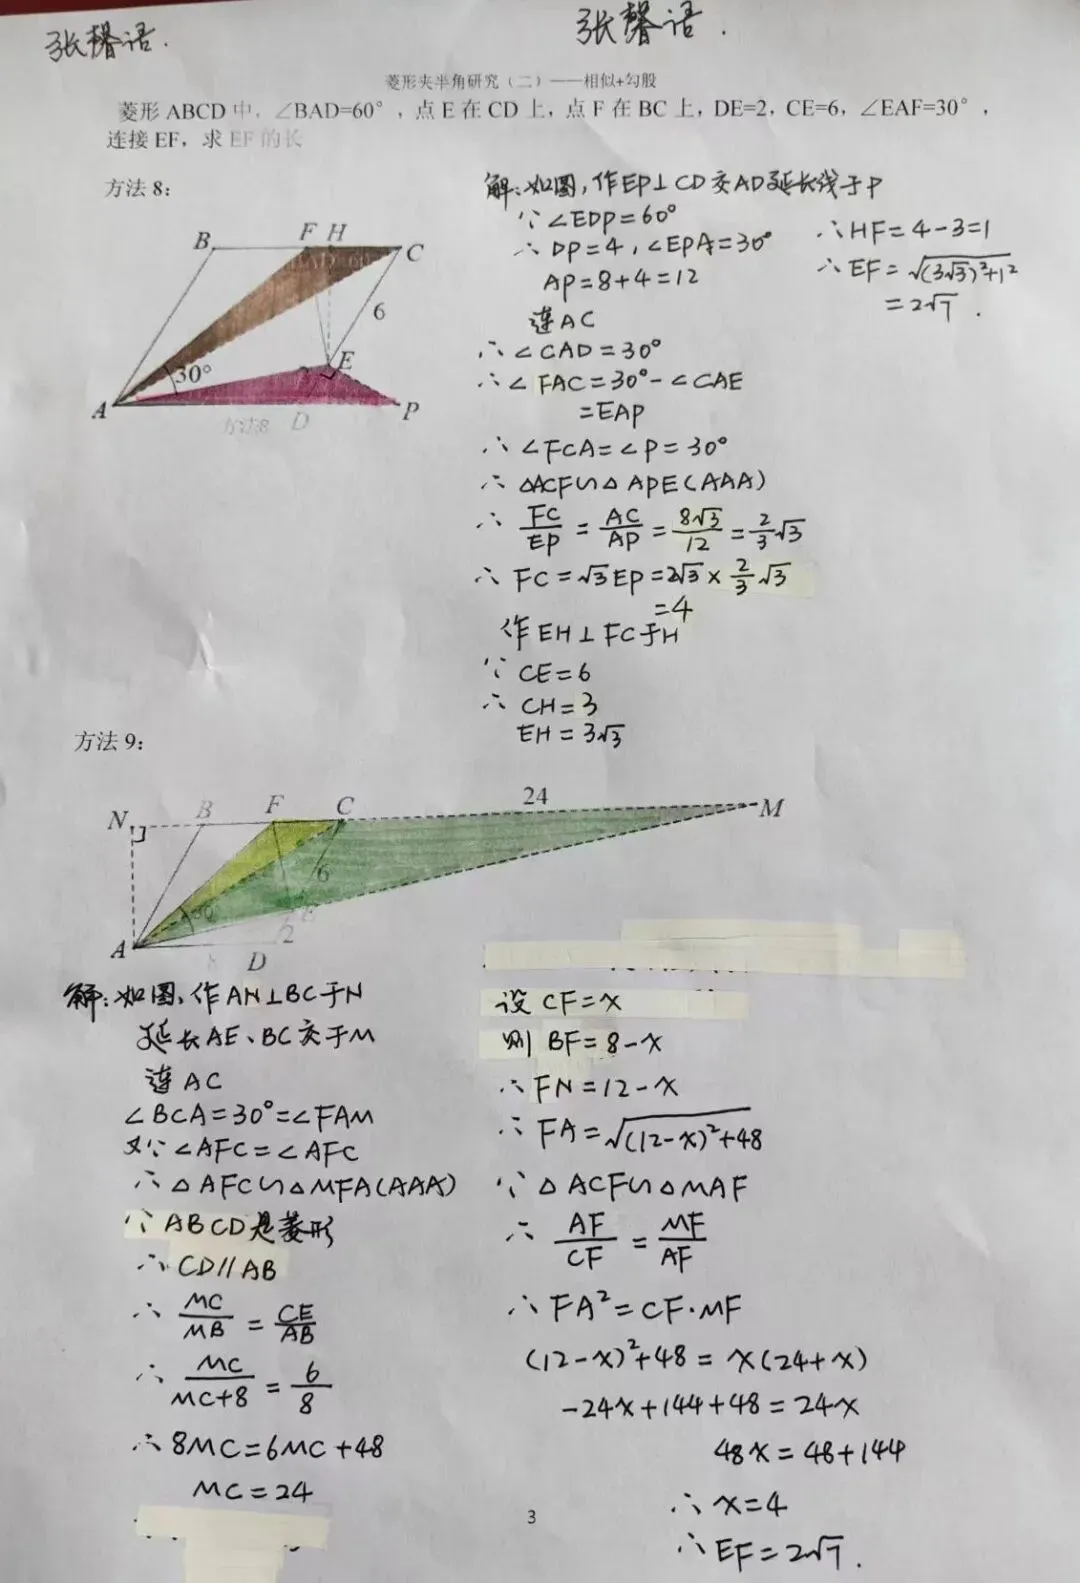 张馨语.
张馨语.
菱形夹半角研究（二）——相似+勾股
菱形 ABCD 中，∠BAD=60°，点 E 在 CD 上，点 F 在 BC 上，DE=2，CE=6，∠EAF=30°，
连接 EF，求 EF 的长
方法 8：
B F H C
6
30° E
A D P
方法8
解：如图，作EP⊥CD交AD延长线于P
∵∠EDP=60°
∴DP=4，∠EPA=30°
AP=8+4=12
连AC
∴∠CAD=30°
∴∠FAC=30°-∠CAE
=EAP
∴∠FCA=∠P=30°
∴△ACF∽△APE(AAA)
∴FC/EP=AC/AP=8√3/12=2/3√3
∴FC=√3EP=2√3×2/3√3
=4
作EH⊥FC于H
∵CE=6
∴CH=3
EH=3√3
∴HF=4-3=1
∴EF=√((3√3)²+1²
=2√7.
方法 9：
N B F C 24 M
6
30° E
2
A D
解：如图，作AN⊥BC于N
延长AE、BC交于M
连AC
∠BCA=30°=∠FAM
又∵∠AFC=∠AFC
∴△AFC∽△MFA(AAA)
∵ABCD是菱形
∴CD∥AB
∴MC/MB=CE/AB
∴MC/MC+8=6/8
∴8MC=6MC+48
MC=24
设CF=x
则BF=8-x
∴FN=12-x
∴FA=√(12-x)²+48
∵△ACF∽△MAF
∴AF/CF=MF/AF
∴FA²=CF·MF
(12-x)²+48=x(24+x)
-24x+144+48=24x
48x=48+144
∴x=4
∴EF=2√7.
3